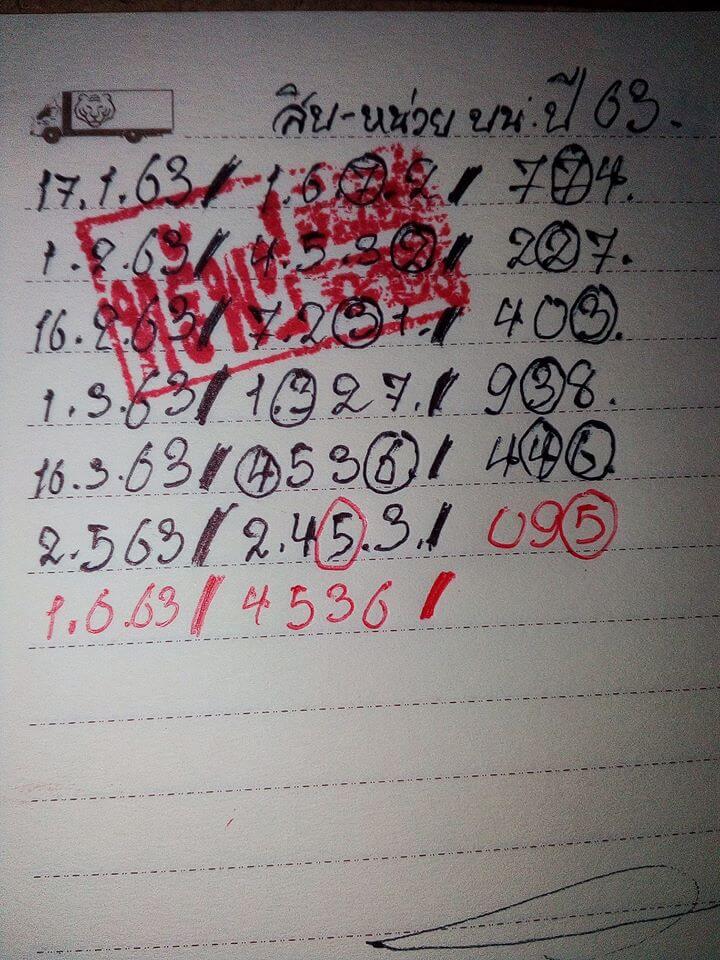 สิบ-หน่วย บน. ปี 63.
17.1.63/ 1.6.7.2/ 774.
1.2.63/ 4.5.32/ 227.
16.2.63/ 7.231./ 403.
1.3.63/ 1.327./ 938.
16.3.63/ 4536./ 446.
2.563/ 2.45.3./ 095
1.6.63/ 4536 /